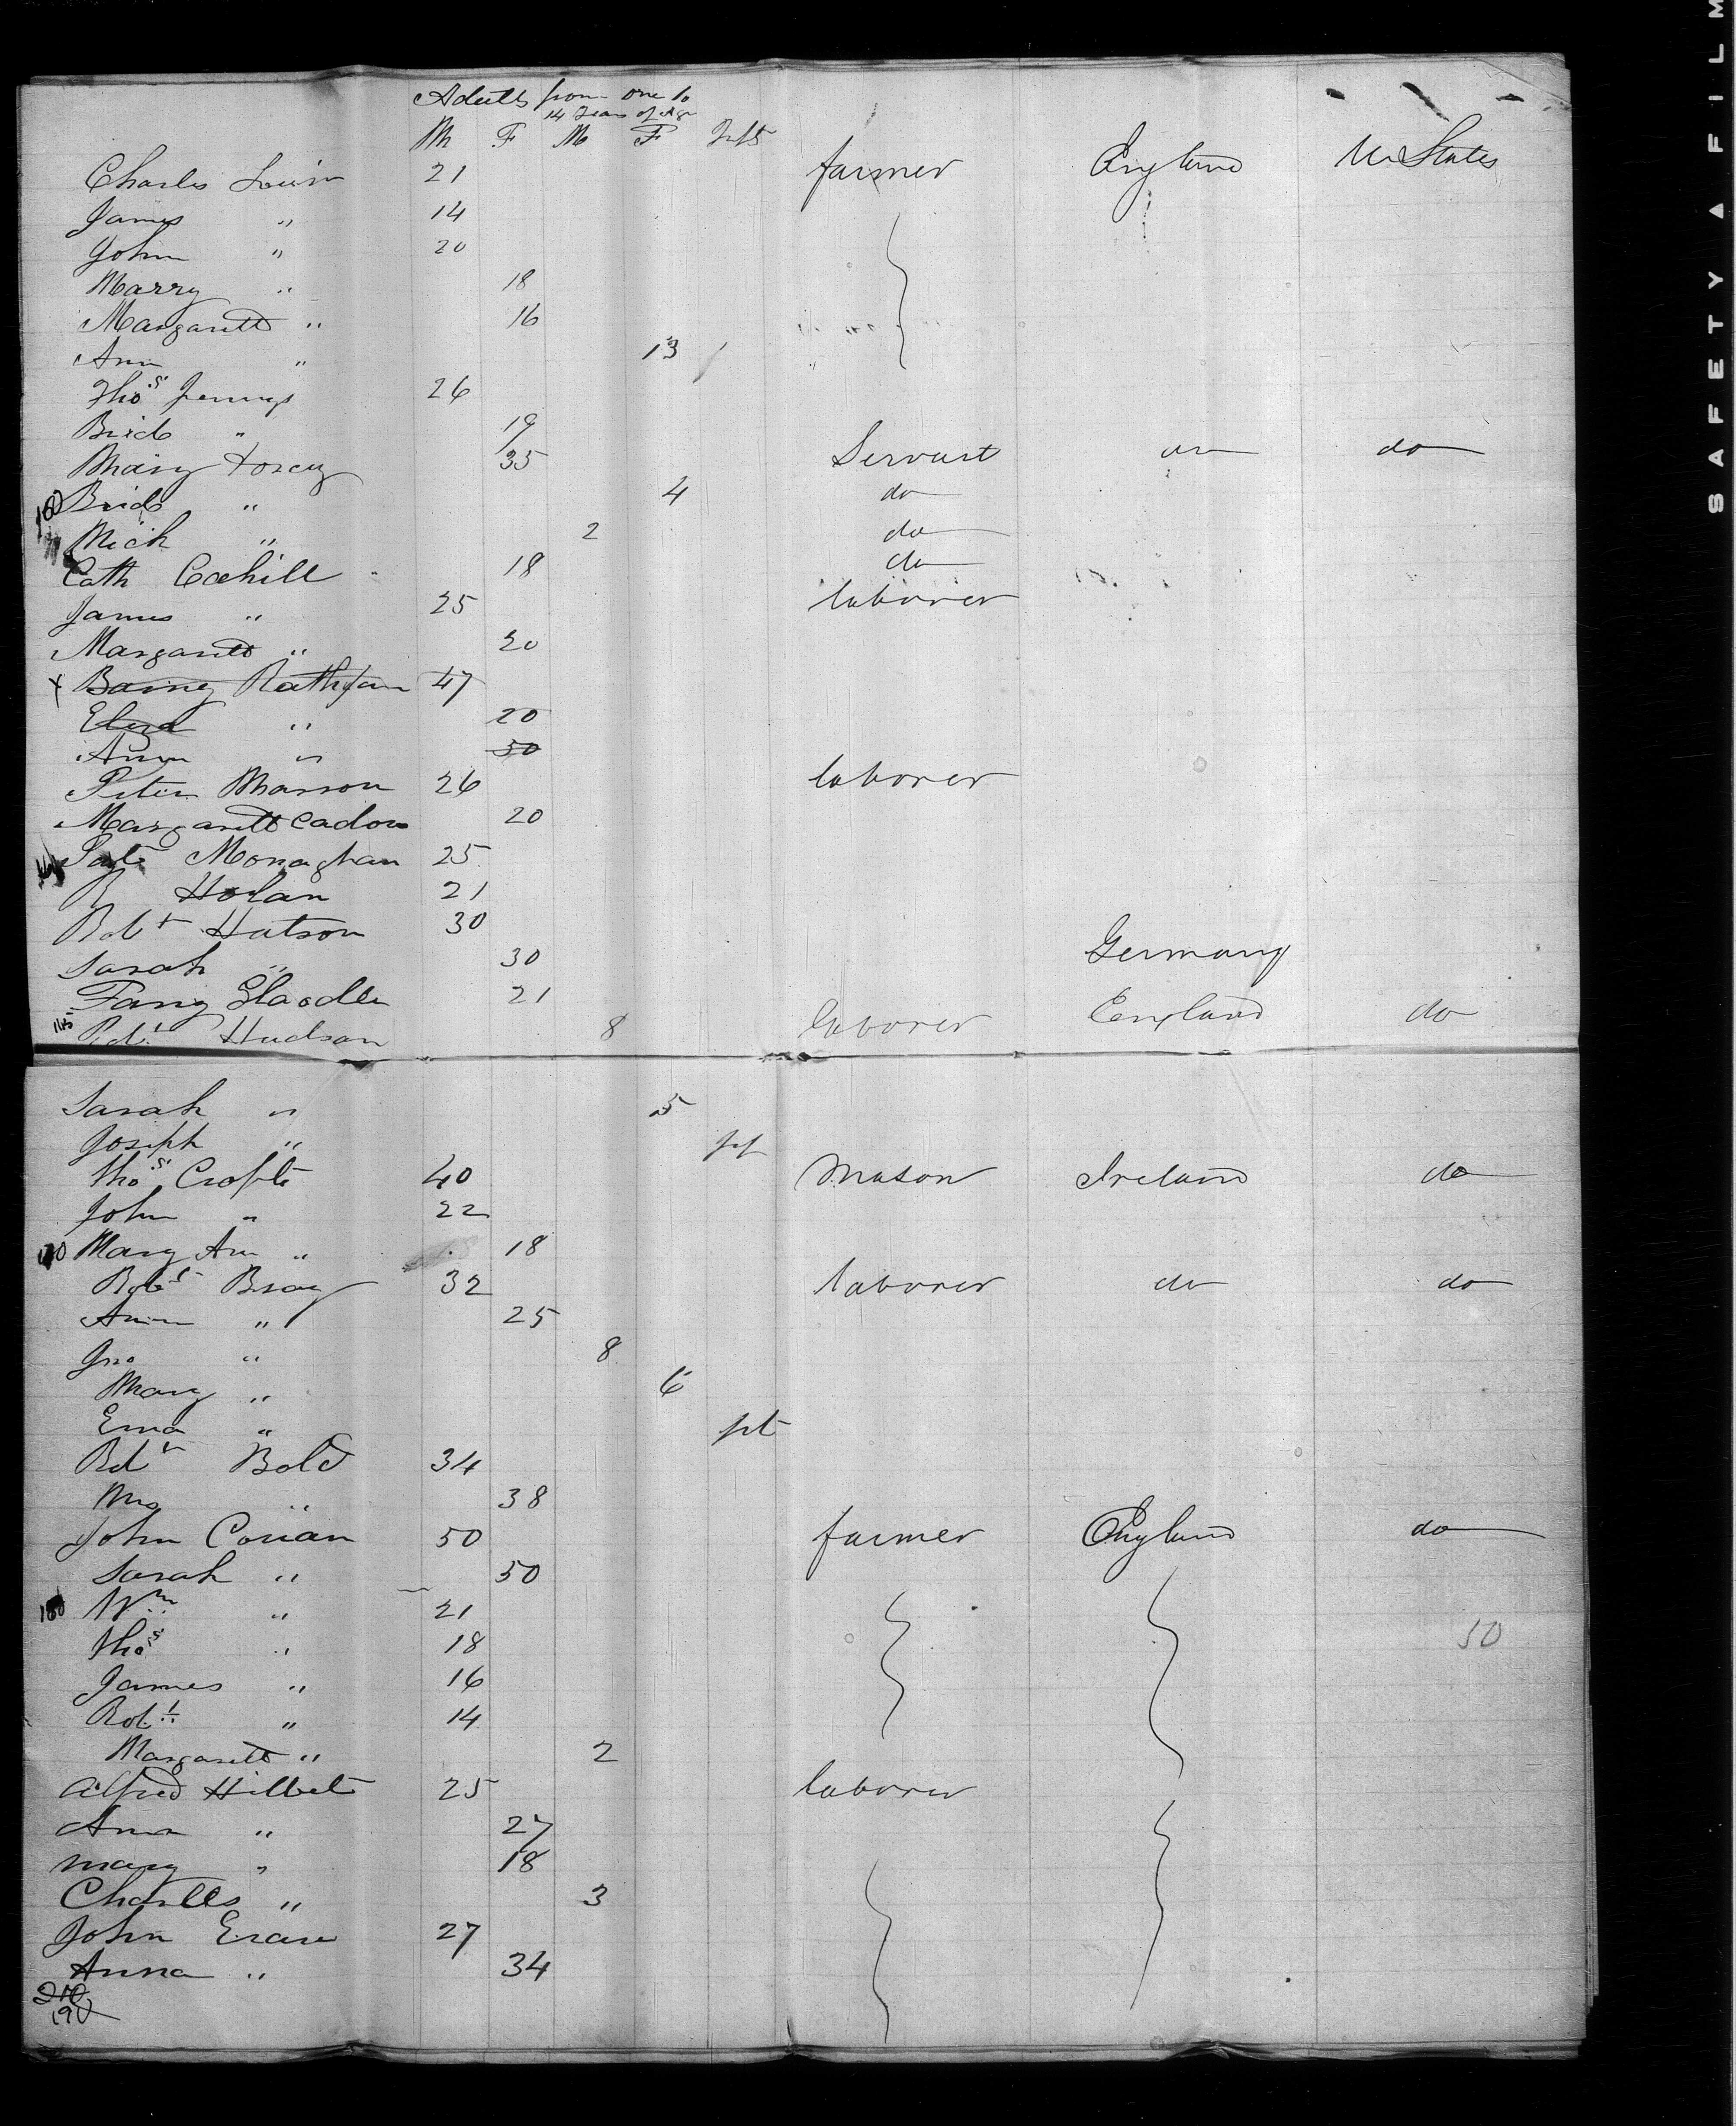 Adults from one to
14 Years of Age
M F M F Infts
Charles 21 farmer England U States
James " 14
John " 20
Marry " 18
Margarett " 16
Ann " 13
Thos Jennings 26
Brid " 19
Mary 35 Servant do do
Brid " 4 do
Mich " 2 do
Cath Cahill 18 do
James " 25 laborer
Margarett " 20
x Barney 47
" 20
Ann " 30
Peter Marron 26 laborer
Margarett Cadon 20
Monaghan 25
Holan 21
Robt Hutson 30
Sarah " 30 Germany
Fany 21
165 Robt Hudson 8 laborer England do
Sarah " 5
Joseph " inf
Thos Crofts 40 Mason Ireland do
John " 22
170 Mary Ann " 18
Robt Bray 32 laborer do do
Ann " 25
Jno " 8
Mary " 6
Ema " inf
Bold 34
Mrs " 38
John Conan 50 farmer England do
Sarah " 50
180 Wm " 21
Thos " 18 50
James " 16
Robt " 14
Margarett " 2
Alfred Hilbet 25 laborer
Ann " 27
Mary " 18
Charlles " 3
John 27
Anna " 34
210
190
SAFETY ▲ FILM